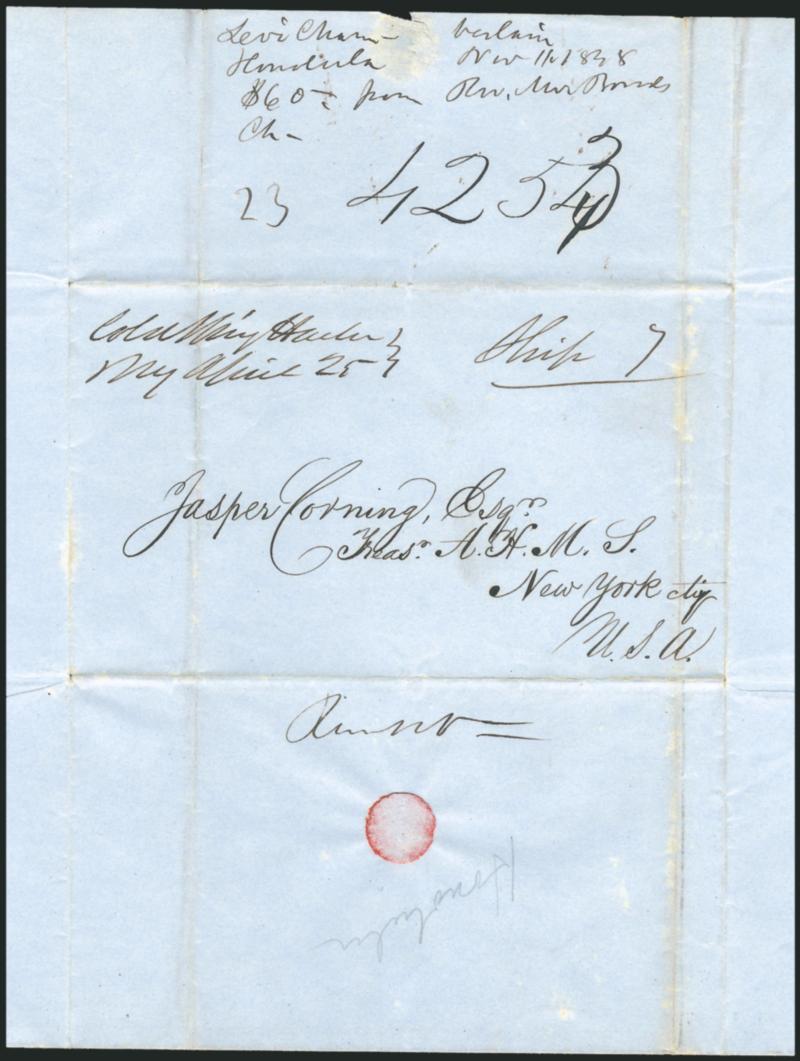 Levi Cham- berlain
Honolulu Nov 11, 1848
$60- from Rev. Mr Bonds
Ch-
23 425
Cold Spring Harbor
Ny April 25 Ship 7
Jasper Corning, Esqr.
Treasr. A. H. M. S.
New York city
U. S. A.
Honolulu